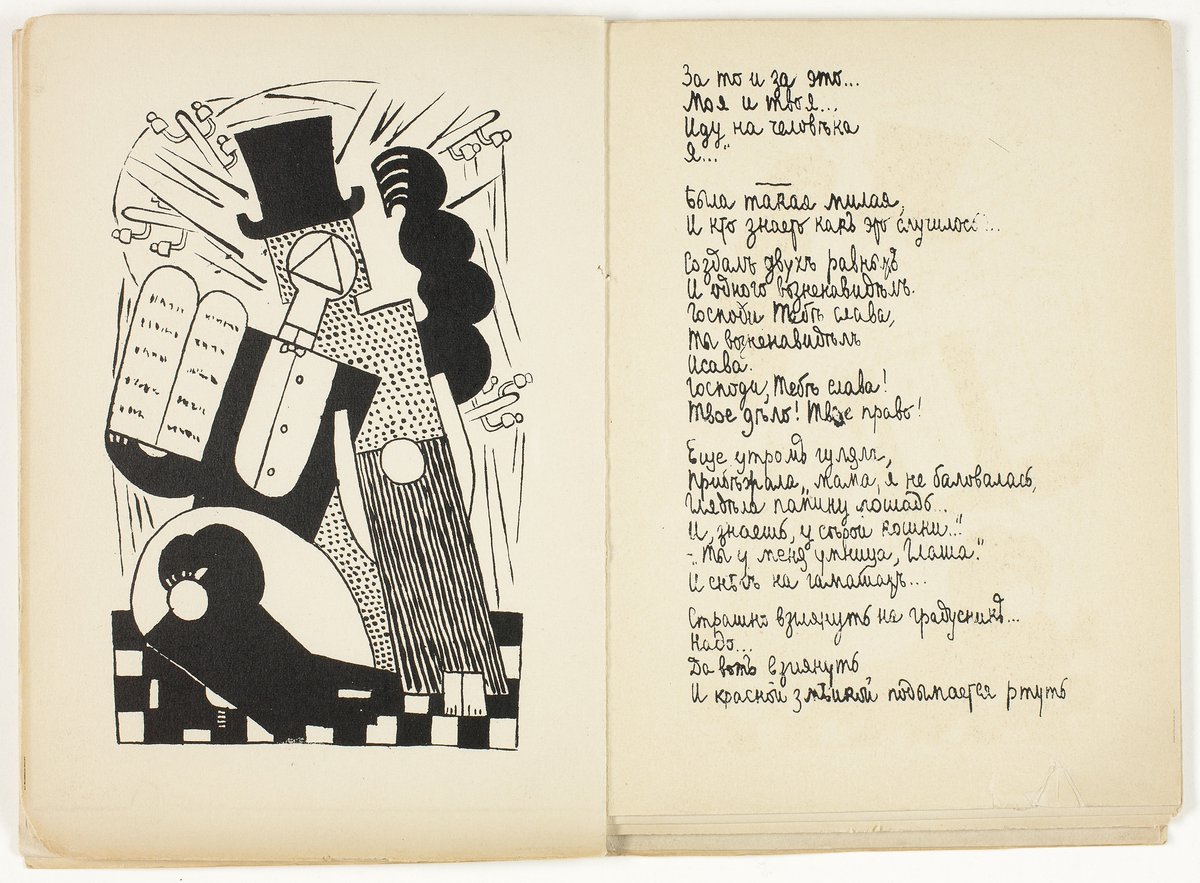 За то и за это...
Моя и твоя...
Иду на человѣка
Я..."
Была такая милая,
И кто знаетъ какъ это случилось...
Создалъ двухъ равныхъ
И одного возненавидѣлъ.
Господи Тебѣ слава,
Ты возненавидѣлъ
Исава.
Господи, Тебѣ слава!
Твое дѣло! Твое право!
Еще утромъ гуляла,
Прибѣжала, „мама, я не баловалась,
Глядѣла папину лошадь...
И, знаешь, у сѣрой кошки..."
- „Ты у меня умница, Глаша."
И снѣгъ на гамашахъ...
Страшно взглянуть на градусникъ...
Надо...
Да вотъ взглянуть
И красной змѣйкой подымается ртуть